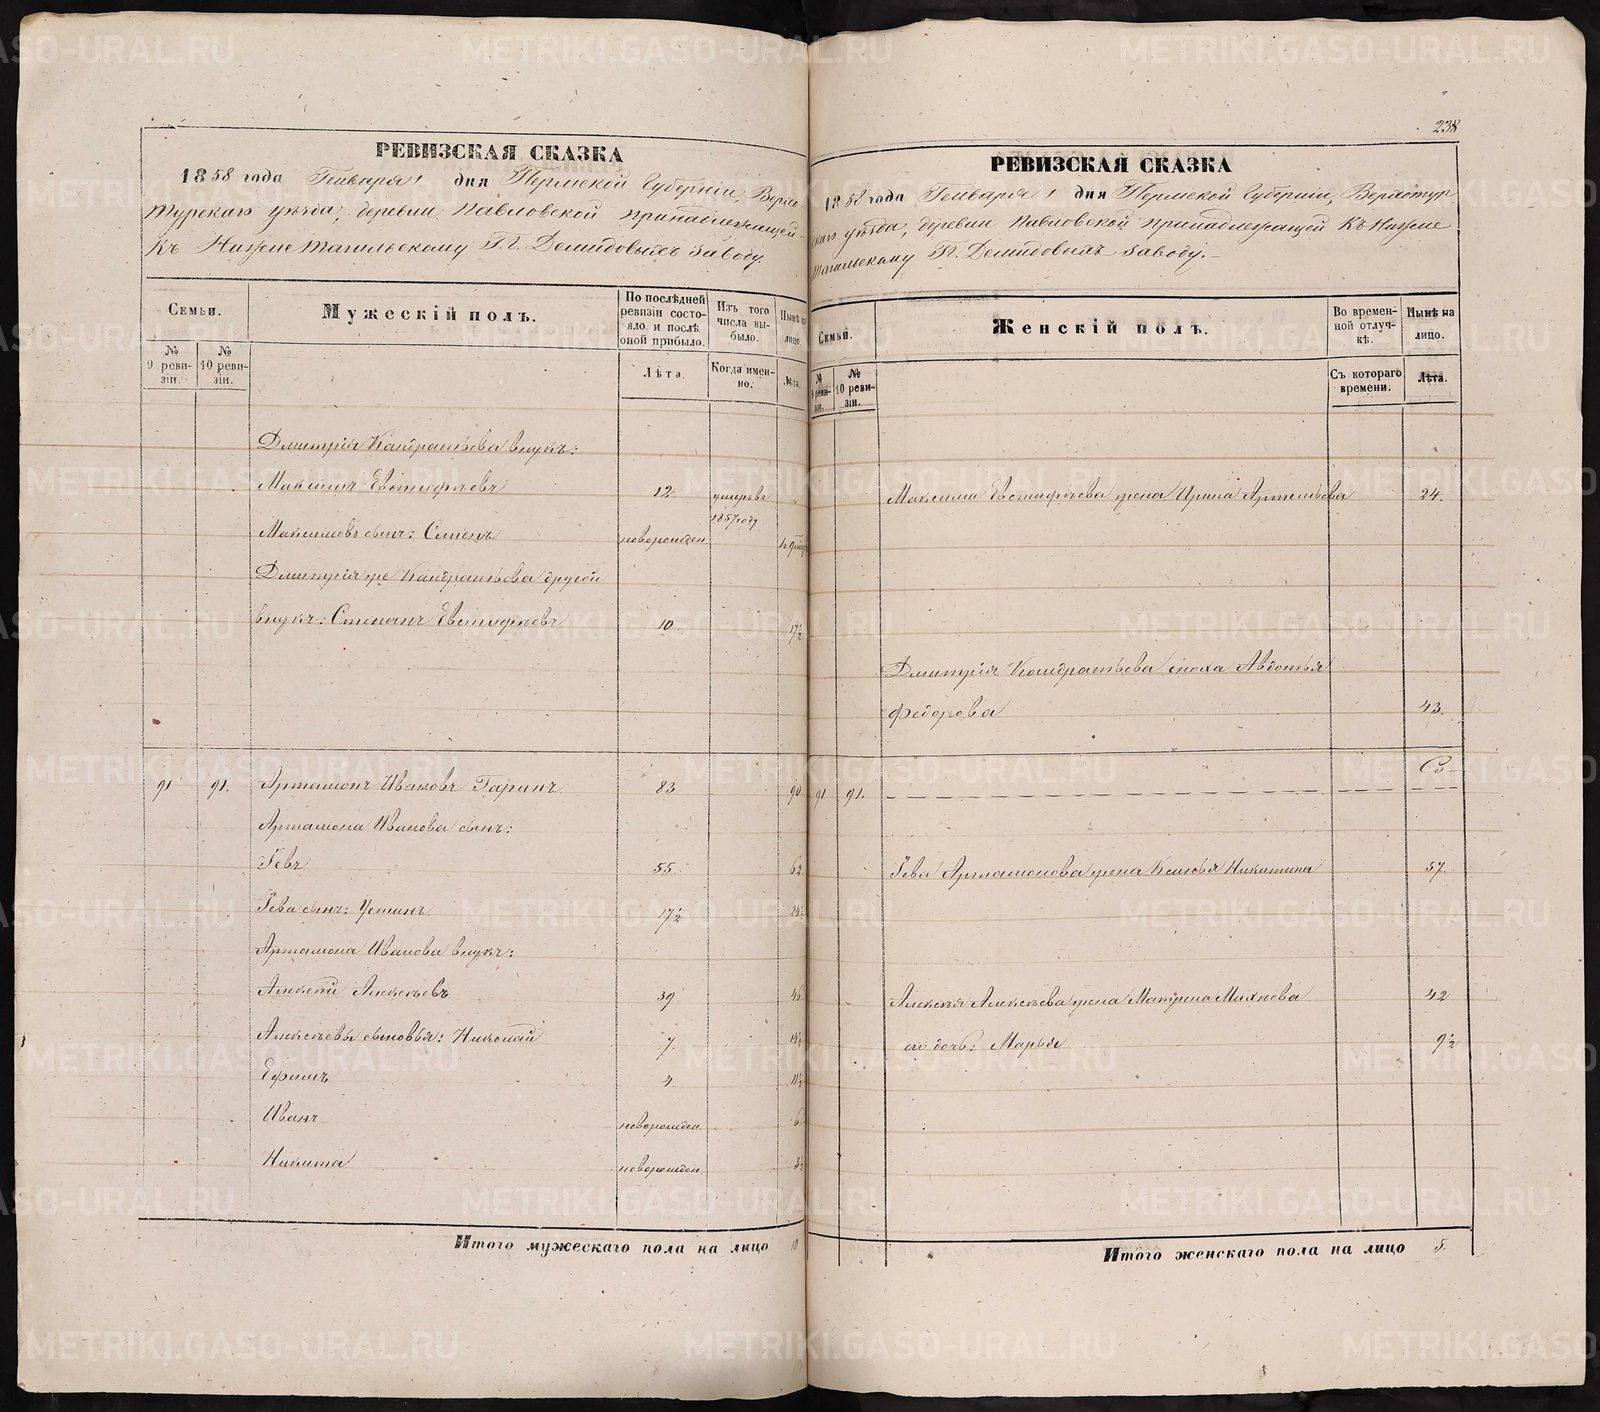 238
РЕВИЗСКАЯ СКАЗКА
1858 года Генваря 1 дня Пермской Губерніи, Верхо
турскаго уѣзда, деревни Павловской принадлежащей
къ Нижнетагильскому Гг. Демидовыхъ заводу.
Семьи.
Мужескій полъ.
По послѣдней ревизіи состояло и послѣ оной прибыло.
Изъ того числа выбыло.
Нынѣ на лицо.
№ 9 ревизіи.
№ 10 ревизіи.
Лѣта.
Когда именно.
Лѣта.
Дмитрія Кандратьева внукъ:
Максимъ Евстифѣевъ 12 умеръ въ 1857 году
Максимовъ сынъ: Семенъ новорожден
Дмитрія же Кандратьева другой
внукъ: Степанъ Евстифѣевъ 10 17½
91 91. Артамонъ Ивановъ Гаринъ 83 90
Артамона Иванова сынъ:
Гевъ 55 62
Гева сынъ: Устинъ 17½ 24½
Артамона Иванова внукъ:
Алексѣй Алексѣевъ 39 46
Алексѣевы сыновья: Николай 7. 14½
Ефимъ 4. 11½
Иванъ новорожден 6
Никита новорожден 3½
Итого мужескаго пола на лицо 10
РЕВИЗСКАЯ СКАЗКА
1858 года Генваря 1 дня Пермской Губерніи, Верхотур
скаго уѣзда, деревни Павловской принадлежащей къ Нижне
тагильскому Гг. Демидовыхъ заводу.
Семьи.
Женскій полъ.
Во временной отлучкѣ.
Нынѣ на лицо.
№ 9 ревизіи.
№ 10 ревизіи.
Съ котораго времени.
Лѣта.
Максима Евстифѣева жена Ирина Артемьева 24.
Дмитрія Кондратьева сноха Авдотья
Федорова 43.
91 91.
Гева Артамонова жена Ксенья Никитина 57.
Алексѣя Алексѣева жена Матрена Михѣева 42
ихъ дочь: Марья 9½
Итого женскаго пола на лицо 5.
METRIKI.GASO-URAL.RU